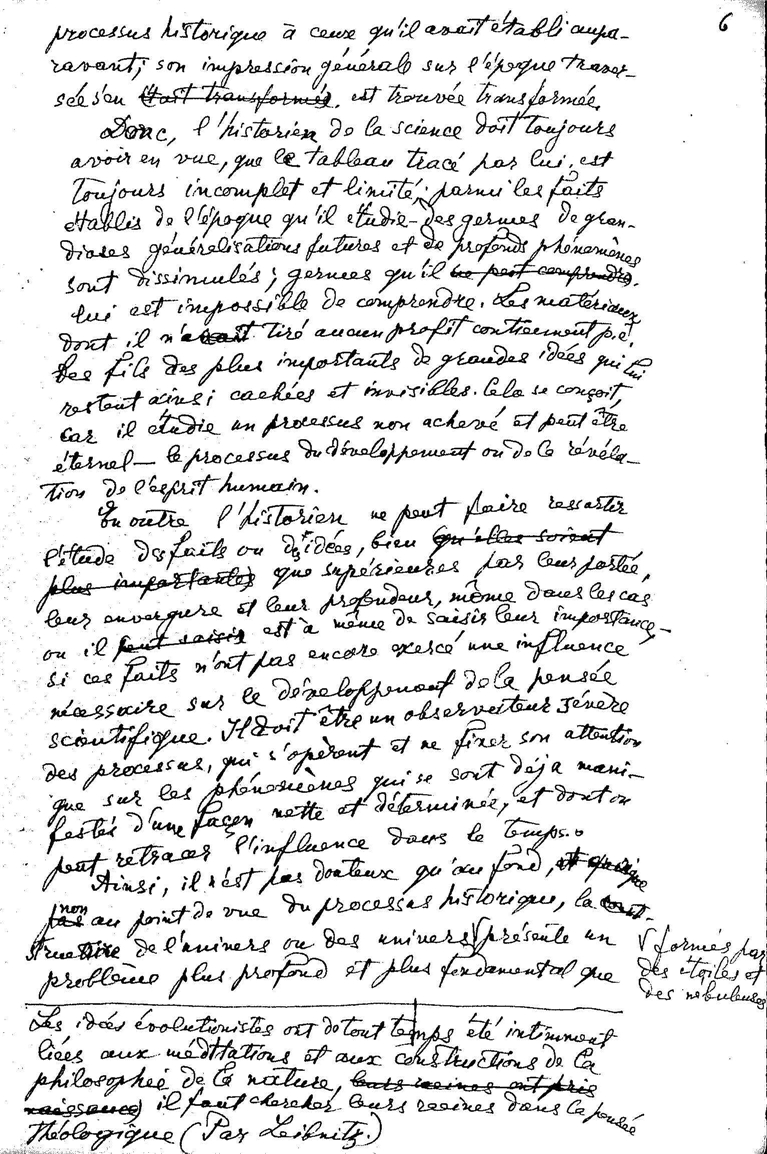 6
processus historique à ceux qu'il avait établi aupa-
ravant; son impression générale sur l'époque traver-
sée s'en était transformée. est trouvée transformée.
Donc, l'historien de la science doit toujours
avoir en vue, que le tableau tracé par lui, est
toujours incomplet et limité; parmi les faits
établis de l'époque qu'il étudie - des germes de gran-
dioses généralisations futures et de profonds phénomènes
sont dissimulés; germes qu'il ne peut comprendre.
lui est impossible de comprendre. Les matériaux
dont il n'avait tiré aucun profit contiennent p.ê.
des fils des plus importants de grandes idées qui lui
restent ainsi cachées et invisibles. Cela se conçoit,
car il étudie un processus non achevé et peut être
éternel — le processus du développement ou de la révéla-
tion de l'esprit humain.
En outre l'historien ne peut faire ressortir
l'étude des faits ou des idées, bien qu'elles soient
plus importantes que supérieures par leur portée,
leur envergure et leur profondeur, même dans les cas
ou il peut saisir est à même de saisir leur importance,-
si ces faits n'ont pas encore exercé une influence
nécessaire sur le développement de la pensée
scientifique. Il doit être un observateur sévère
des processus, qui s'opèrent et ne fixer son attention
que sur les phénomènes qui se sont déjà mani-
festés d'une façon nette et déterminée, et dont on
peut retracer l'influence dans le temps.
Ainsi, il n'est pas douteux qu'au fond, et quoique
pas non au point de vue du processus historique, la const-
structure de l'univers ou des univers √ présente un
√ formés par
des étoiles et
des nébuleuses
problème plus profond et plus fondamental que
Les idées évolutionistes ont de tout temps été intimment
liées aux méditations et aux constructions de la
philosophie de la nature, leurs racines ont pris
naissance) il faut chercher leurs racines dans la pensée
théologique (Par Leibnitz.)